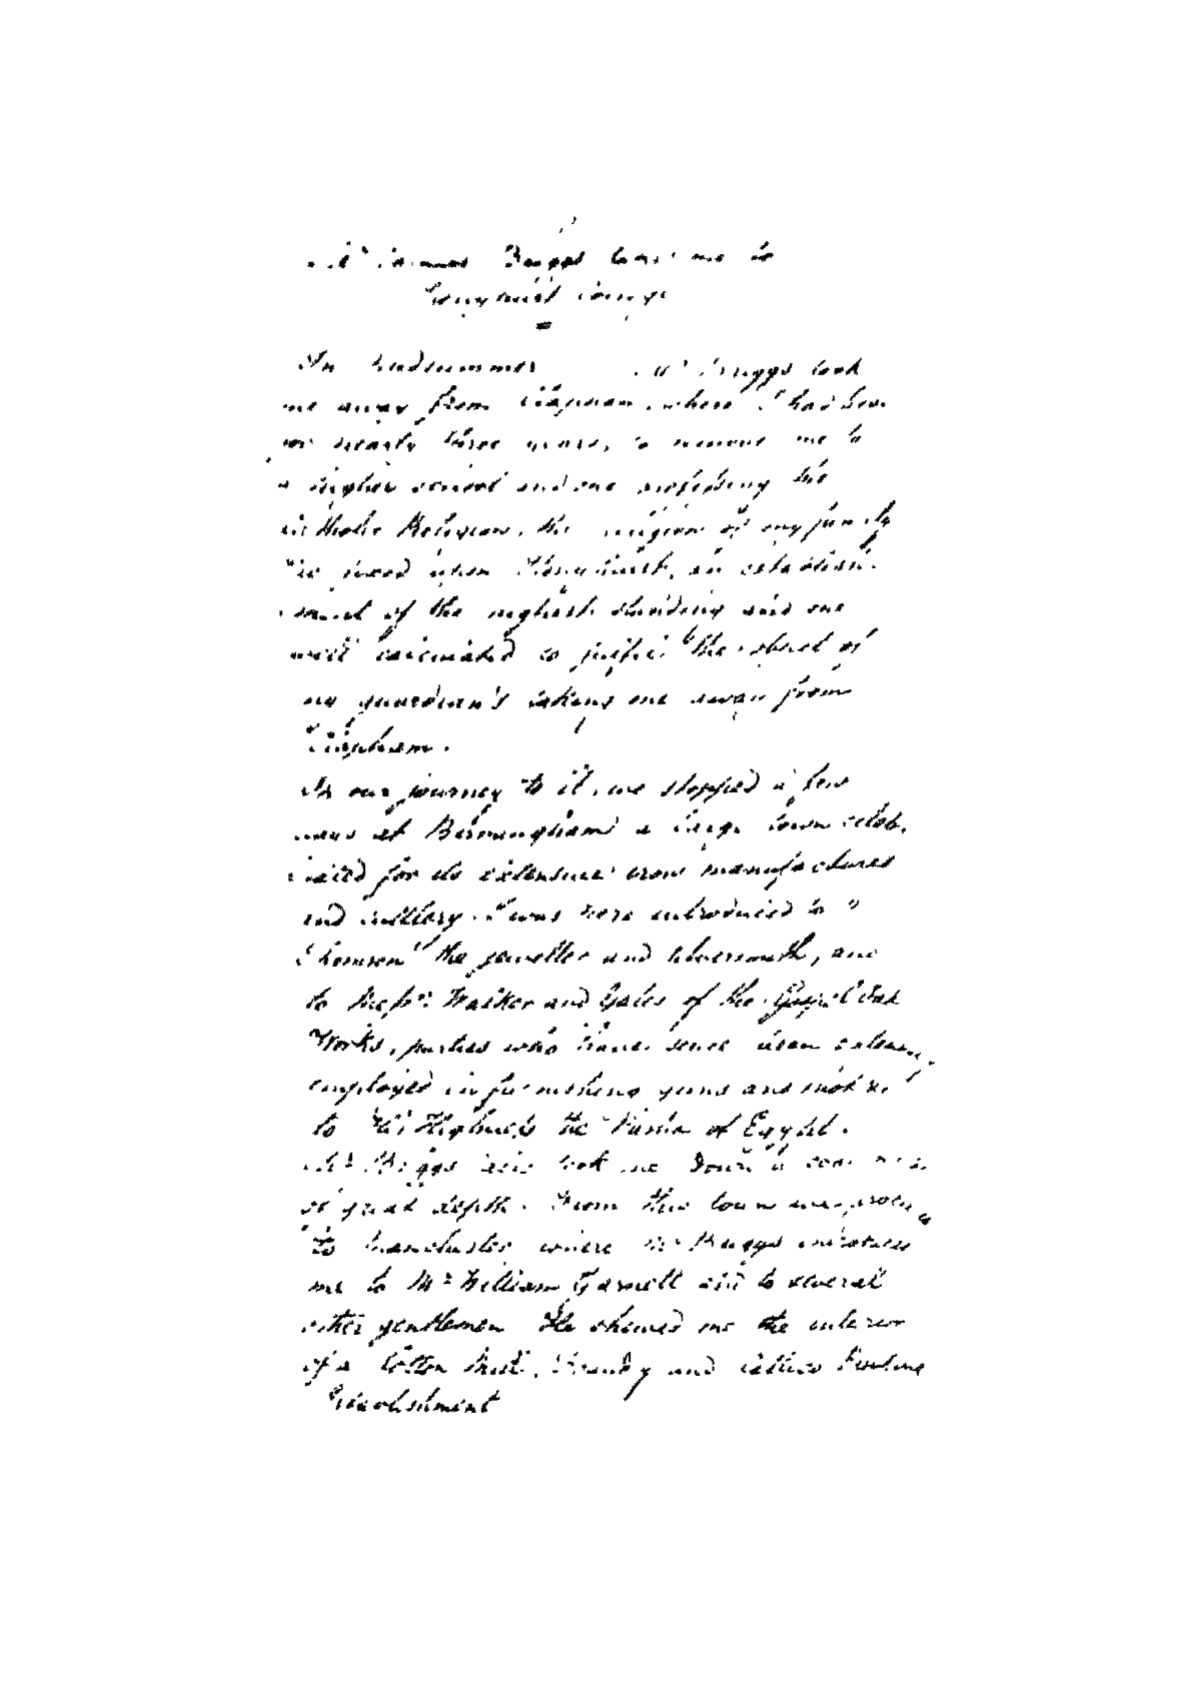 Mr Thomas Briggs takes me to
Stonyhurst College
In Midsummer Mr Briggs took
me away from Clapham, where I had been
for nearly three years, to remove me to
a higher school and one professing the
Catholic Religion, the religion of my family
He fixed upon Stonyhurst, an establish-
ment of the highest standing and one
well calculated to justify the object of
my guardian's taking me away from
Clapham.
In our journey to it, we stopped a few
days at Birmingham a large town celeb-
rated for its extensive iron manufactures
and cutlery. I was here introduced to
Thomson the jeweller and silversmith, and
to Messrs Walker and Yates of the Gospel Oak
Works, parties who have since been
employed in furnishing guns and
to His Highness the Pasha of Egypt.
Mr Briggs also took me down a coal mine
of great depth. From this town we proceeded
to Manchester where Mr Briggs introduced
me to Mr William Garnett and to several
other gentlemen He shewed me the interior
of a Cotton Mill, and Calico Printing
Establishment